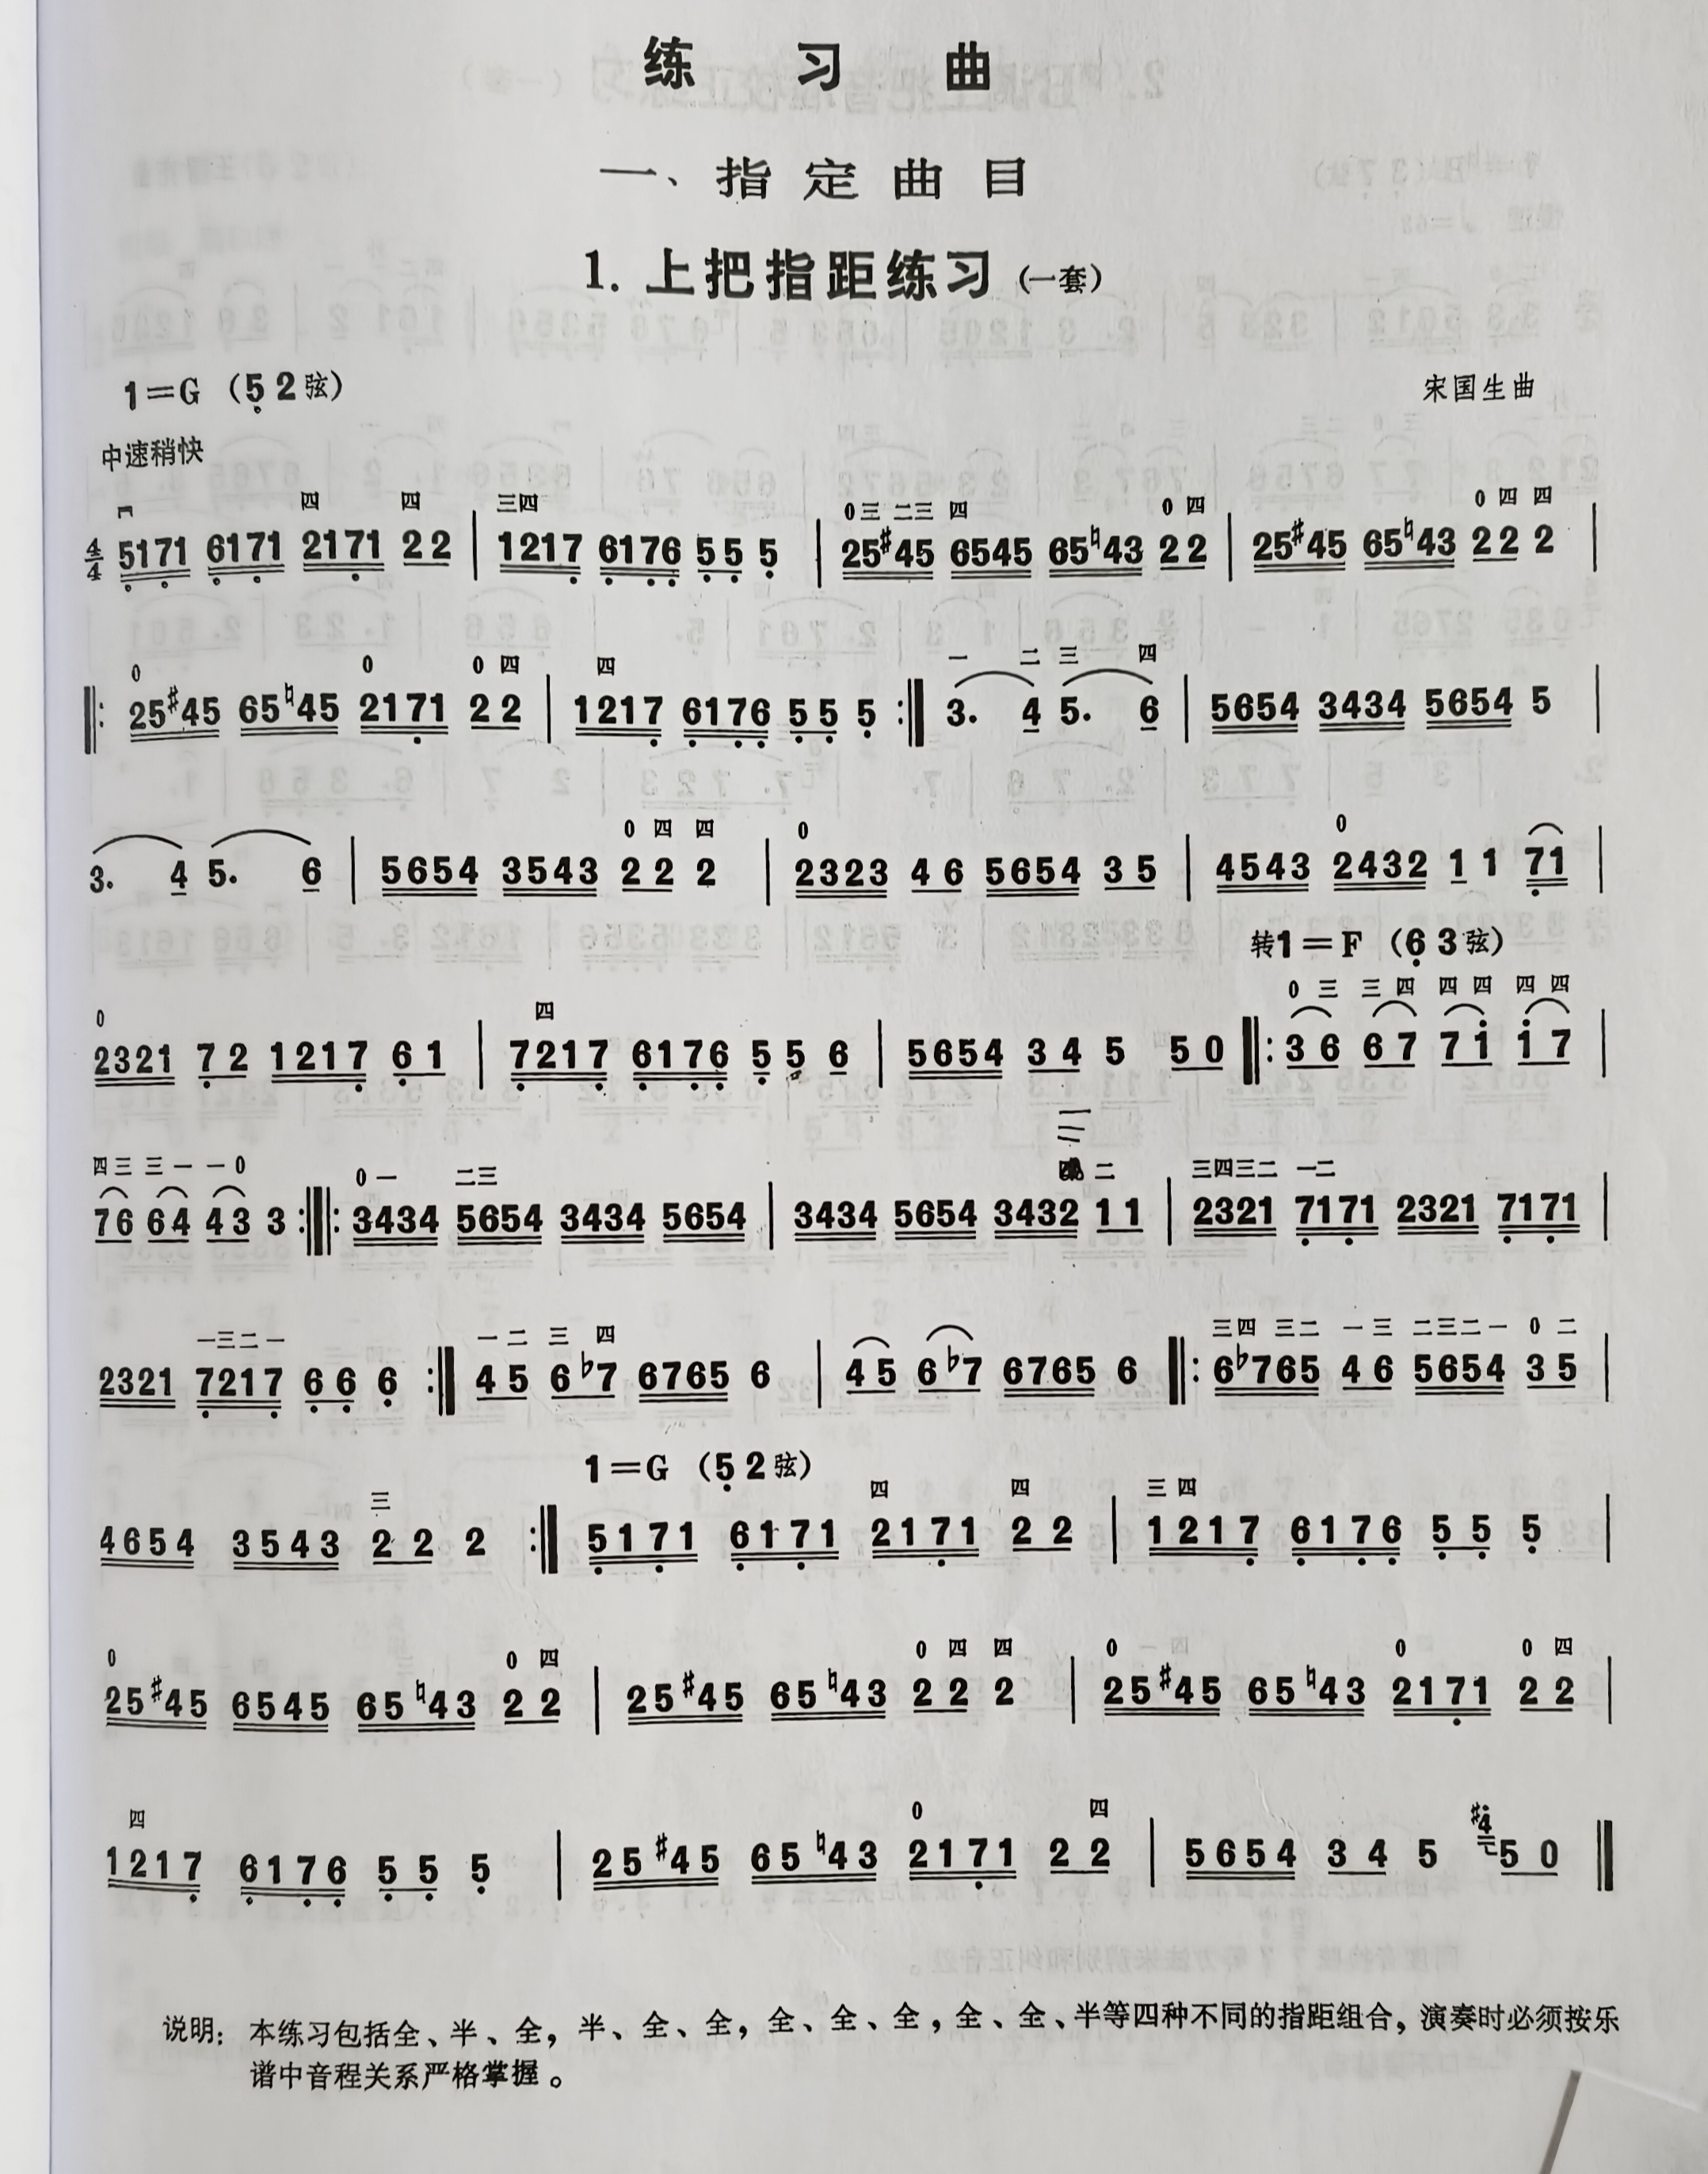 练习曲
一、指定曲目
1. 上把指距练习 (一套)
1=G (5 2弦)
宋国生曲
中速稍快
四 四 三四 0三 二三 四 0 四 0 四 四
4/4 5171 6171 2171 22 | 1217 6176 55 5 | 25#45 6545 65♮43 22 | 25#45 65♮43 22 2 |
0 0 0 四 四 一 二 三 四
‖: 25#45 65♮45 2171 22 | 1217 6176 55 5 :‖ 3. 4 5. 6 | 5654 3434 5654 5 |
0 四 四 0 0
3. 4 5. 6 | 5654 3543 22 2 | 2323 46 5654 35 | 4543 2432 1 1 71 |
转1=F (6 3弦)
0 四 0 三 三 四 四 四 四 四
2321 72 1217 61 | 7217 6176 5 5 6 | 5654 34 5 50 ‖: 36 67 7i i7 |
四三 三一 一0 0一 二三 二 三四三二 一二
76 64 43 3 :‖: 3434 5654 3434 5654 | 3434 5654 3432 11 | 2321 7171 2321 7171 |
一三二一 一二 三 四 三四 三二 一三 二三二一 0二
2321 7217 66 6 :‖ 45 6♭7 6765 6 | 45 6♭7 6765 6 ‖: 6♭765 46 5654 35 |
1=G (5 2弦)
三 四 四 三四
4654 3543 22 2 :‖ 5171 6171 2171 22 | 1217 6176 55 5 |
0 0 四 0 四 四 0 一 四 0 0 四
25#45 6545 65♮43 22 | 25#45 65♮43 22 2 | 25#45 65♮43 2171 22 |
四 0 四
1217 6176 55 5 | 25#45 65♮43 2171 22 | 5654 34 5 #4 50 ‖
说明：本练习包括全、半、全，半、全、全，全、全、全，全、全、半等四种不同的指距组合，演奏时必须按乐
谱中音程关系严格掌握。